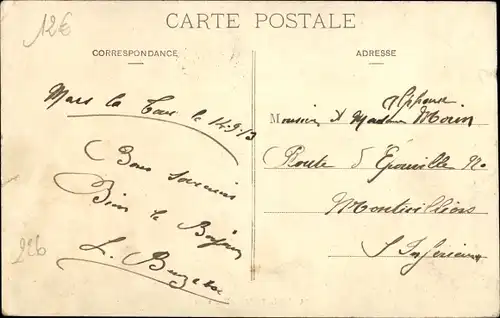 12€
CARTE POSTALE
CORRESPONDANCE
ADRESSE
Mars la Tour le 14-9-13
Bons souvenirs
Bien le Bonjour
L.
226
Alphonse
Monsieur & Madame Morin
Route d'Epouville No
Montivilliers
S Inférieure